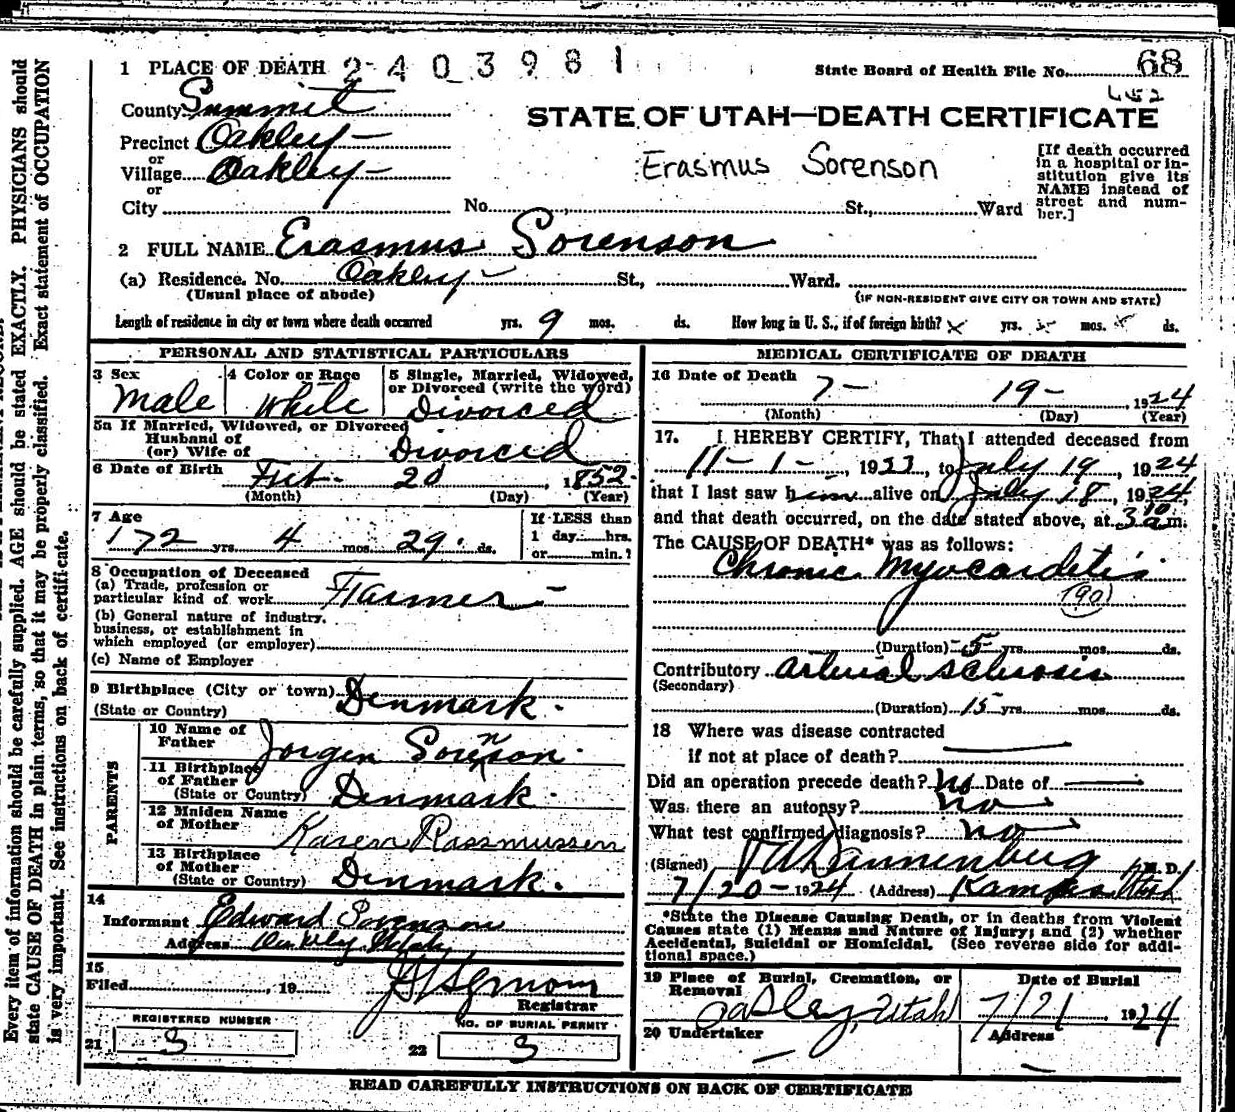 1 PLACE OF DEATH 2403981 State Board of Health File No. 68
County Summit
Precinct Oakley
or
Village Oakley
or
City No. St., Ward
STATE OF UTAH—DEATH CERTIFICATE
Erasmus Sorenson
[If death occurred
in a hospital or in-
stitution give its
NAME instead of
street and num-
ber.]
2 FULL NAME Erasmus Sorenson
(a) Residence. No. Oakley St., Ward.
(Usual place of abode) (IF NON-RESIDENT GIVE CITY OR TOWN AND STATE)
Length of residence in city or town where death occurred yrs. 9 mos. ds. How long in U. S., if of foreign birth? x yrs. mos. ds.
PERSONAL AND STATISTICAL PARTICULARS
3 Sex
Male
4 Color or Race
White
5 Single, Married, Widowed,
or Divorced (write the word)
Divorced
5a If Married, Widowed, or Divorced
Husband of
(or) Wife of Divorced
6 Date of Birth 20, 1852
(Month) (Day) (Year)
7 Age
72 yrs. 4 mos. 29 ds.
If LESS than
1 day....hrs.
or....min.?
8 Occupation of Deceased
(a) Trade, profession or
particular kind of work Farmer
(b) General nature of industry,
business, or establishment in
which employed (or employer)
(c) Name of Employer
9 Birthplace (City or town)
(State or Country) Denmark.
PARENTS
10 Name of
Father Jorgen Sorenson
11 Birthplace
of Father
(State or Country) Denmark.
12 Maiden Name
of Mother Karen Rasmussen
13 Birthplace
of Mother
(State or Country) Denmark.
14
Informant Edward Sorenson
Address Oakley Utah
15
Filed , 19
Registrar
REGISTERED NUMBER
21 3
NO. OF BURIAL PERMIT
22 3
MEDICAL CERTIFICATE OF DEATH
16 Date of Death 7- 19-, 1924
(Month) (Day) (Year)
17. I HEREBY CERTIFY, That I attended deceased from
11-1-, 19, to July 19, 1924
that I last saw him alive on July 18, 1924,
and that death occurred, on the date stated above, at 3 10 a m.
The CAUSE OF DEATH* was as follows:
Chronic Myocarditis
(90)
(Duration) 5 yrs. mos. ds.
Contributory arterial sclerosis
(Secondary)
(Duration) 15 yrs. mos. ds.
18 Where was disease contracted
if not at place of death?
Did an operation precede death? no Date of
Was there an autopsy? no
What test confirmed diagnosis? no
(Signed) Dannenberg, M. D.
7/20-1924 (Address) Kamas Utah
*State the Disease Causing Death, or in deaths from Violent
Causes state (1) Means and Nature of Injury; and (2) whether
Accidental, Suicidal or Homicidal. (See reverse side for addi-
tional space.)
19 Place of Burial, Cremation, or
Removal
Oakley, Utah
Date of Burial
7/21 1924
20 Undertaker Address
READ CAREFULLY INSTRUCTIONS ON BACK OF CERTIFICATE
Every item of information should be carefully supplied. AGE should be stated EXACTLY. PHYSICIANS should
state CAUSE OF DEATH in plain terms, so that it may be properly classified. Exact statement of OCCUPATION
is very important. See instructions on back of certificate.